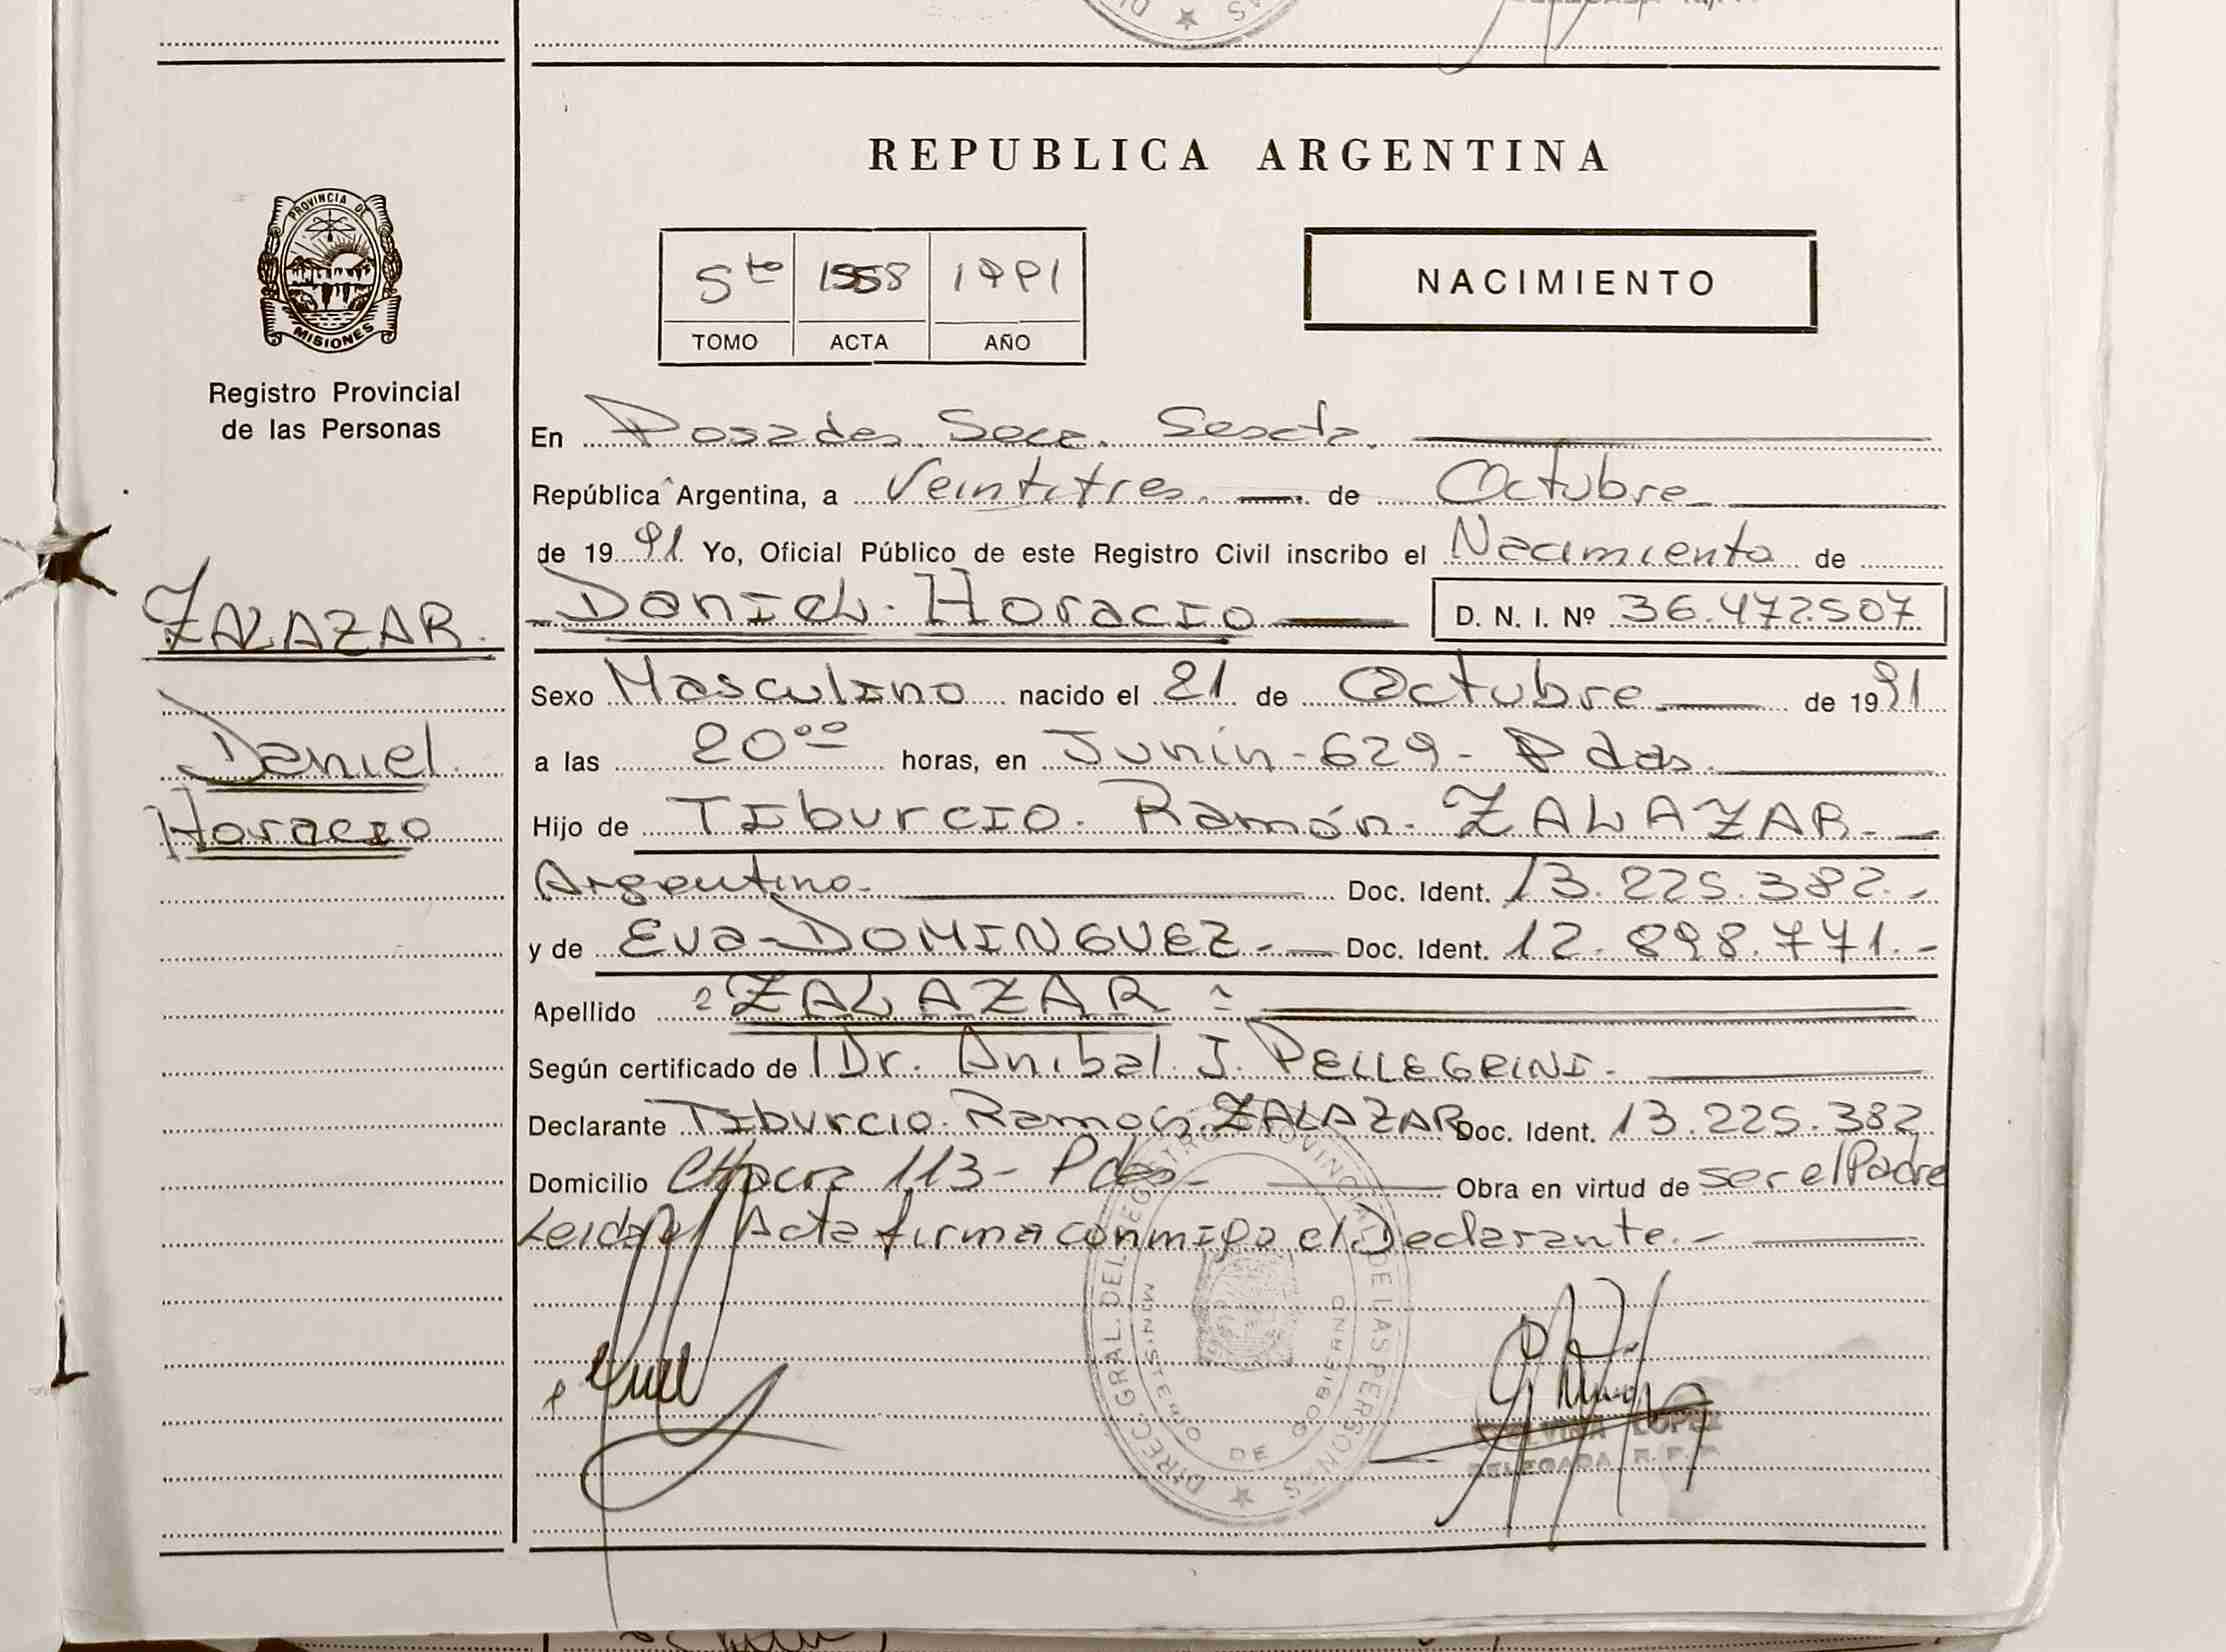 REPUBLICA ARGENTINA
PROVINCIA DE
MISIONES
Registro Provincial
de las Personas
5to 1558 1991
TOMO ACTA AÑO
NACIMIENTO
En Posadas Secc. Sexta.
República Argentina, a Veintitres. de Octubre
de 1991 Yo, Oficial Público de este Registro Civil inscribo el Nacimiento de
Daniel Horacio D. N. I. Nº 36.472507
ZALAZAR.
Daniel
Horacio
Sexo Masculino nacido el 21 de Octubre de 1991
a las 20 00 horas, en Junín-629- Pdas.
Hijo de Tiburcio. Ramón. ZALAZAR-
Argentino- Doc. Ident. 13.225.382.-
y de Eva DOMINGUEZ.- Doc. Ident. 12.898.771.-
Apellido ZALAZAR
Según certificado de Dr. Anibal J. PELLEGRINI-
Declarante Tiburcio. Ramon ZALAZAR Doc. Ident. 13.225.382
Domicilio Chacra 113- Pdas- Obra en virtud de ser el Padre
Leida el Acta firma conmigo el Declarante.-
DIREC. GRAL. DEL REGISTRO PROVINCIAL DE LAS PERSONAS
MINISTERIO DE GOBIERNO
LOPEZ
DELEGADA